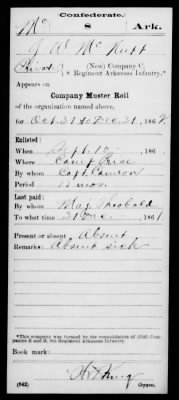 Confederate.
Mc 8 Ark.
J. W. McKuff
Private, (New) Company C,
8 Regiment Arkansas Infantry.*
Appears on
Company Muster Roll
of the organization named above,
for Oct. 31 to Dec. 31, 186
Enlisted:
When Sept. 10, 186
Where Camp Price
By whom Capt. Cameron
Period 12 mos.
Last paid:
By whom Maj. Theobald
To what time 31 Dec. 1861
Present or absent Absent
Remarks: Absent sick
*This company was formed by the consolidation of (Old) Companies E and H, 8th Regiment Arkansas Infantry.
Book mark:
(642) Copyist.